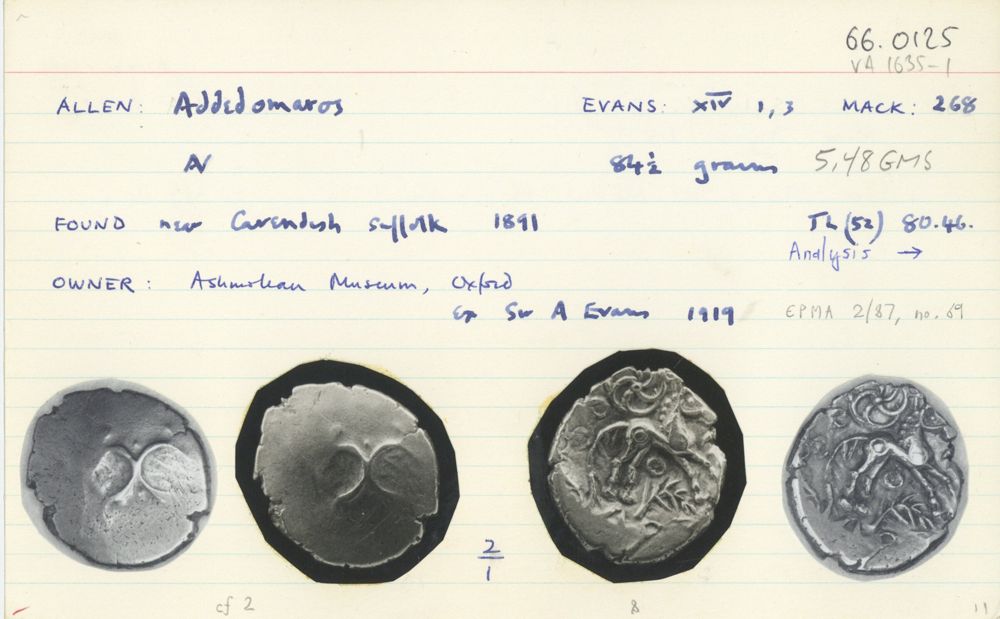 66.0125
VA 1635-1
ALLEN: Addedomaros EVANS: XIV 1, 3 MACK: 268
AV 84½ grams 5,48 GMS
FOUND near Cavendish Suffolk 1891 TL (52) 80.46.
Analysis →
OWNER: Ashmolean Museum, Oxford
ex Sir A Evans 1919 EPMA 2/87, no. 69
2
1
cf 2 8 11